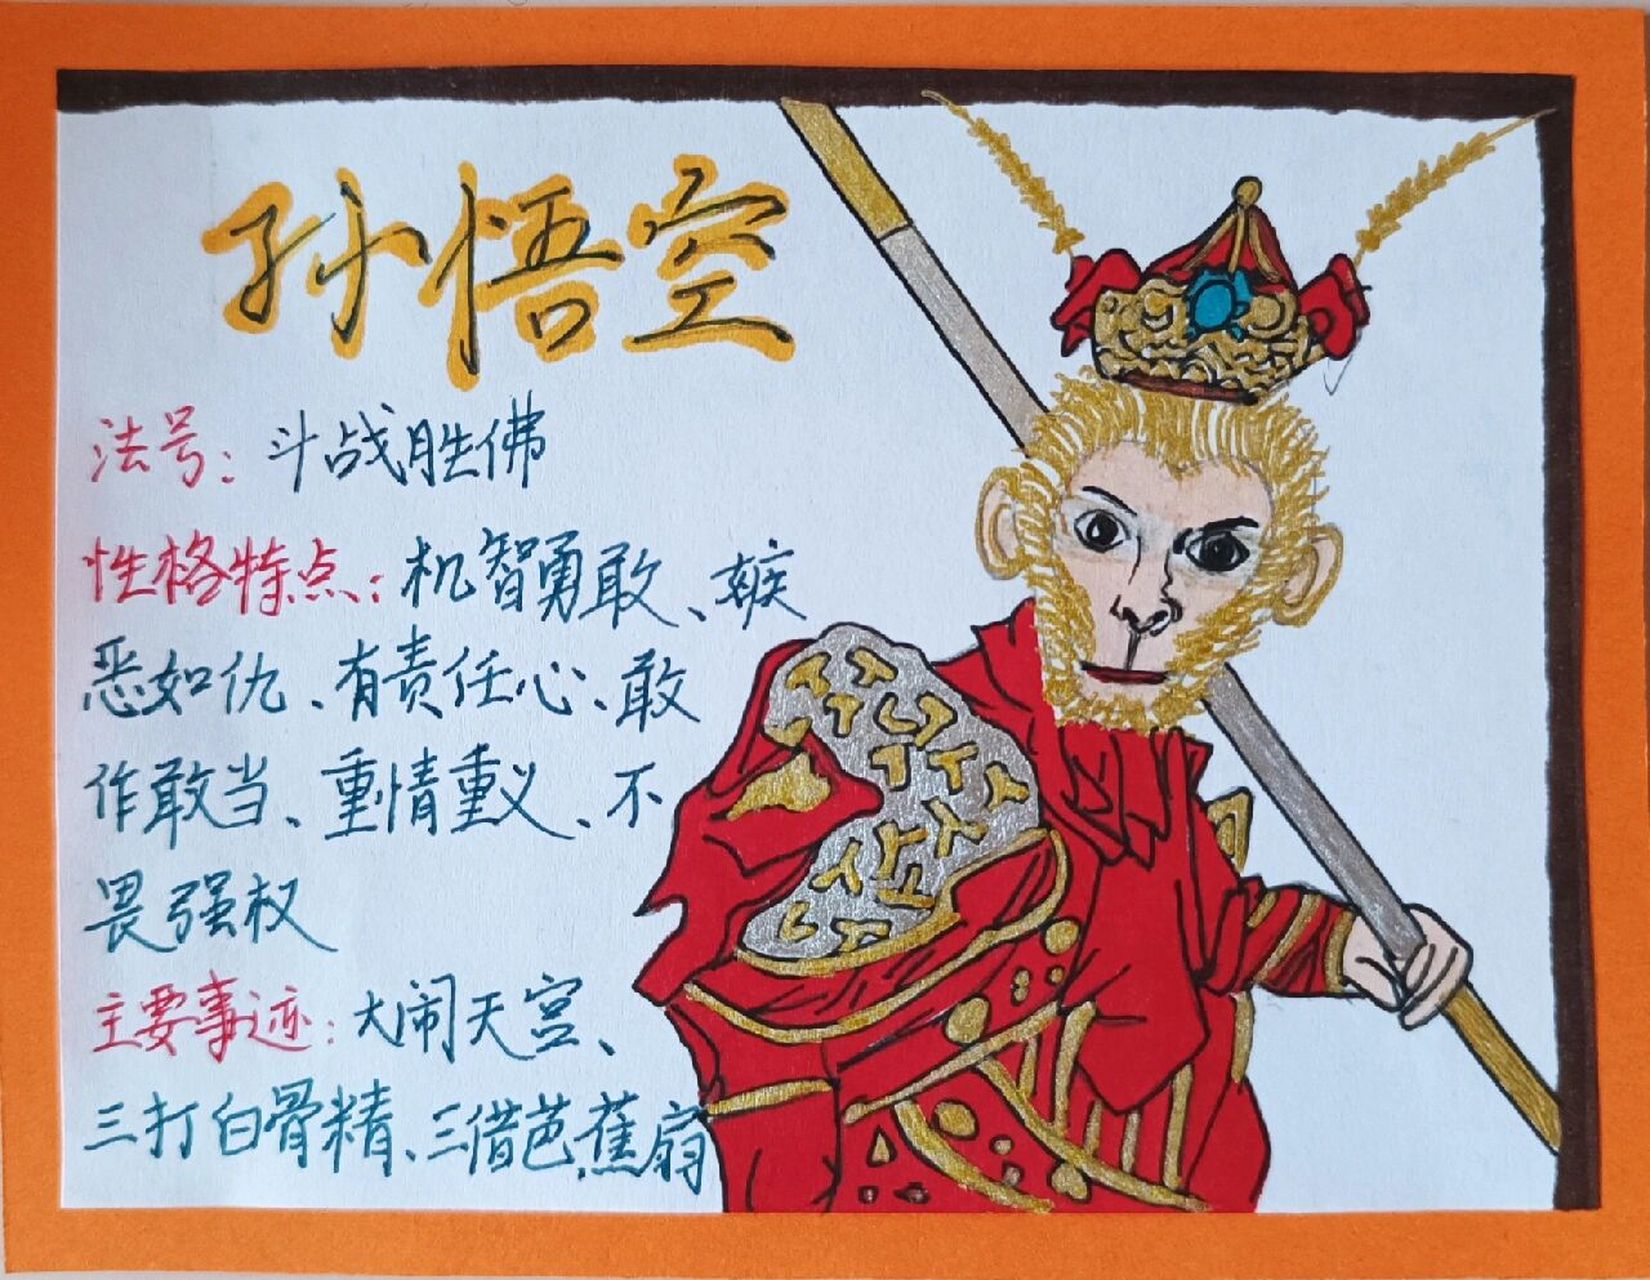 孙悟空
法号：斗战胜佛
性格特点：机智勇敢、嫉
恶如仇、有责任心、敢
作敢当、重情重义、不
畏强权
主要事迹：大闹天宫、
三打白骨精、三借芭蕉扇